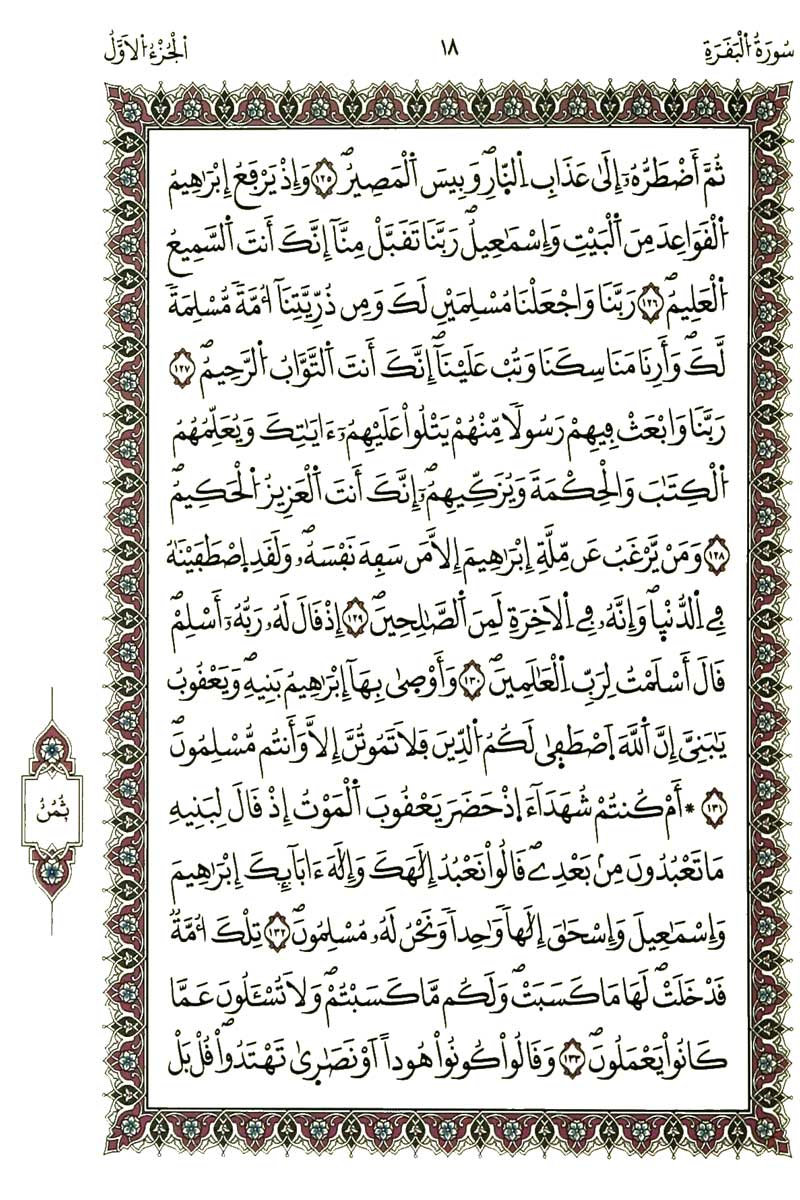 سُورَةُ الْبَقَرَةِ
١٨
الْجُزْءُ الْأَوَّلُ
ثُمَّ أَضْطَرُّهُۥٓ إِلَىٰ عَذَابِ اِ۬لنّ۪ارِۖ وَبِيسَ اَ۬لْمَصِيرُۖ ١٢٥ وَإِذْ يَرْفَعُ إِبْرَٰهِيمُ
اُ۬لْقَوَاعِدَ مِنَ اَ۬لْبَيْتِ وَإِسْمَٰعِيلُۖ رَبَّنَا تَقَبَّلْ مِنَّآ إِنَّكَ أَنتَ اَ۬لسَّمِيعُ
اُ۬لْعَلِيمُۖ ١٢٦ رَبَّنَا وَاجْعَلْنَا مُسْلِمَيْنِ لَكَ وَمِن ذُرِّيَّتِنَآ أُمَّةٗ مُّسْلِمَةٗ
لَّكَۖ وَأَرِنَا مَنَاسِكَنَا وَتُبْ عَلَيْنَآۖ إِنَّكَ أَنتَ اَ۬لتَّوَّابُ اُ۬لرَّحِيمُۖ ١٢٧
رَبَّنَا وَابْعَثْ فِيهِمْ رَسُولاٗ مِّنْهُمْ يَتْلُواْ عَلَيْهِمُۥٓ ءَايَٰتِكَ وَيُعَلِّمُهُمُ
اُ۬لْكِتَٰبَ وَالْحِكْمَةَ وَيُزَكِّيهِمُۥٓۖ إِنَّكَ أَنتَ اَ۬لْعَزِيزُ اُ۬لْحَكِيمُۖ
١٢٨ وَمَنْ يَّرْغَبُ عَن مِّلَّةِ إِبْرَٰهِيمَ إِلَّا مَن سَفِهَ نَفْسَهُۥۖ وَلَقَدِ اِ۪صْطَفَيْنَٰهُ
فِے اِ۬لدُّنْي۪اۖ وَإِنَّهُۥ فِے اِ۬لَاخِرَةِ لَمِنَ اَ۬لصَّٰلِحِينَۖ ١٢٩ إِذْ قَالَ لَهُۥ رَبُّهُۥٓ أَسْلِمْۖ
قَالَ أَسْلَمْتُ لِرَبِّ اِ۬لْعَٰلَمِينَۖ ١٣٠ وَأَوْصۭيٰ بِهَآ إِبْرَٰهِيمُ بَنِيهِ وَيَعْقُوبُ
يَٰبَنِيَّ إِنَّ اَ۬للَّهَ اَ۪صْطَف۪يٰ لَكُمُ اُ۬لدِّينَ فَلَا تَمُوتُنَّ إِلَّا وَأَنتُم مُّسْلِمُونَۖ
١٣١ * أَمْ كُنتُمْ شُهَدَآءَ اِ۪ذْ حَضَرَ يَعْقُوبَ اَ۬لْمَوْتُ إِذْ قَالَ لِبَنِيهِ
مَا تَعْبُدُونَ مِنۢ بَعْدِےۖ قَالُواْ نَعْبُدُ إِلَٰهَكَ وَإِلَٰهَ ءَابَآئِكَ إِبْرَٰهِيمَ
وَإِسْمَٰعِيلَ وَإِسْحَٰقَ إِلَٰهاٗ وَٰحِداٗ وَنَحْنُ لَهُۥ مُسْلِمُونَۖ ١٣٢ تِلْكَ أُمَّةٞ
قَدْ خَلَتْۖ لَهَا مَا كَسَبَتْۖ وَلَكُم مَّا كَسَبْتُمْۖ وَلَا تُسْـَٔلُونَ عَمَّا
كَانُواْ يَعْمَلُونَۖ ١٣٣ وَقَالُواْ كُونُواْ هُوداً اَوْ نَصَٰر۪يٰ تَهْتَدُواْۖ قُلْ بَلْ
ثُمُنُ